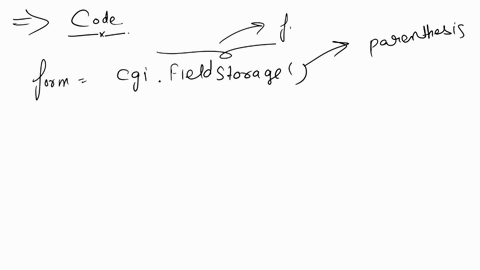 => Code
f.
parenthesis
form = cgi.FieldStorage()